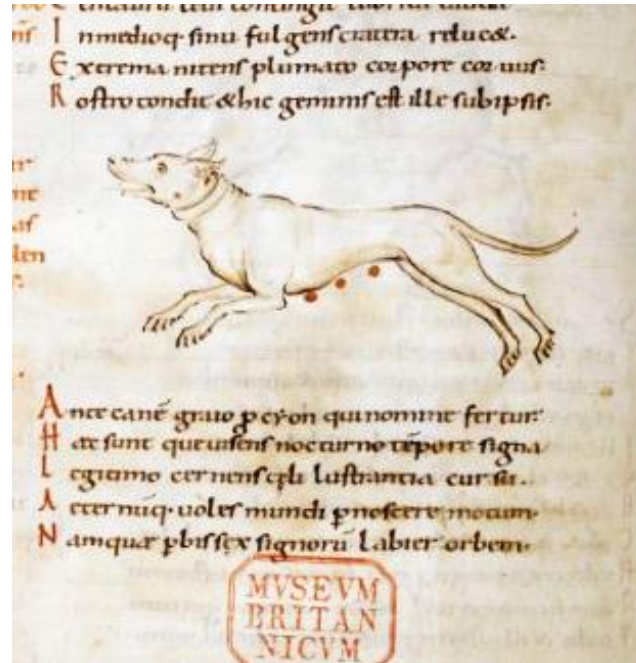 I nmedioq· sinu fulgens cratera reluc&·
E xtrema nitens plumato corpore coruus·
R ostro tondit & hic geminis est ille subipsis·
A nte canē graio p cyon qui nomine fertur·
H ae sunt que uisens nocturno tēpore signa
L egitimo cernens cęli lustrantia cursu·
A eternūq· uoles mundi pnoscere motum·
N amquae pbissex signorū labier orbem·
MVSEVM
BRITAN
NICVM